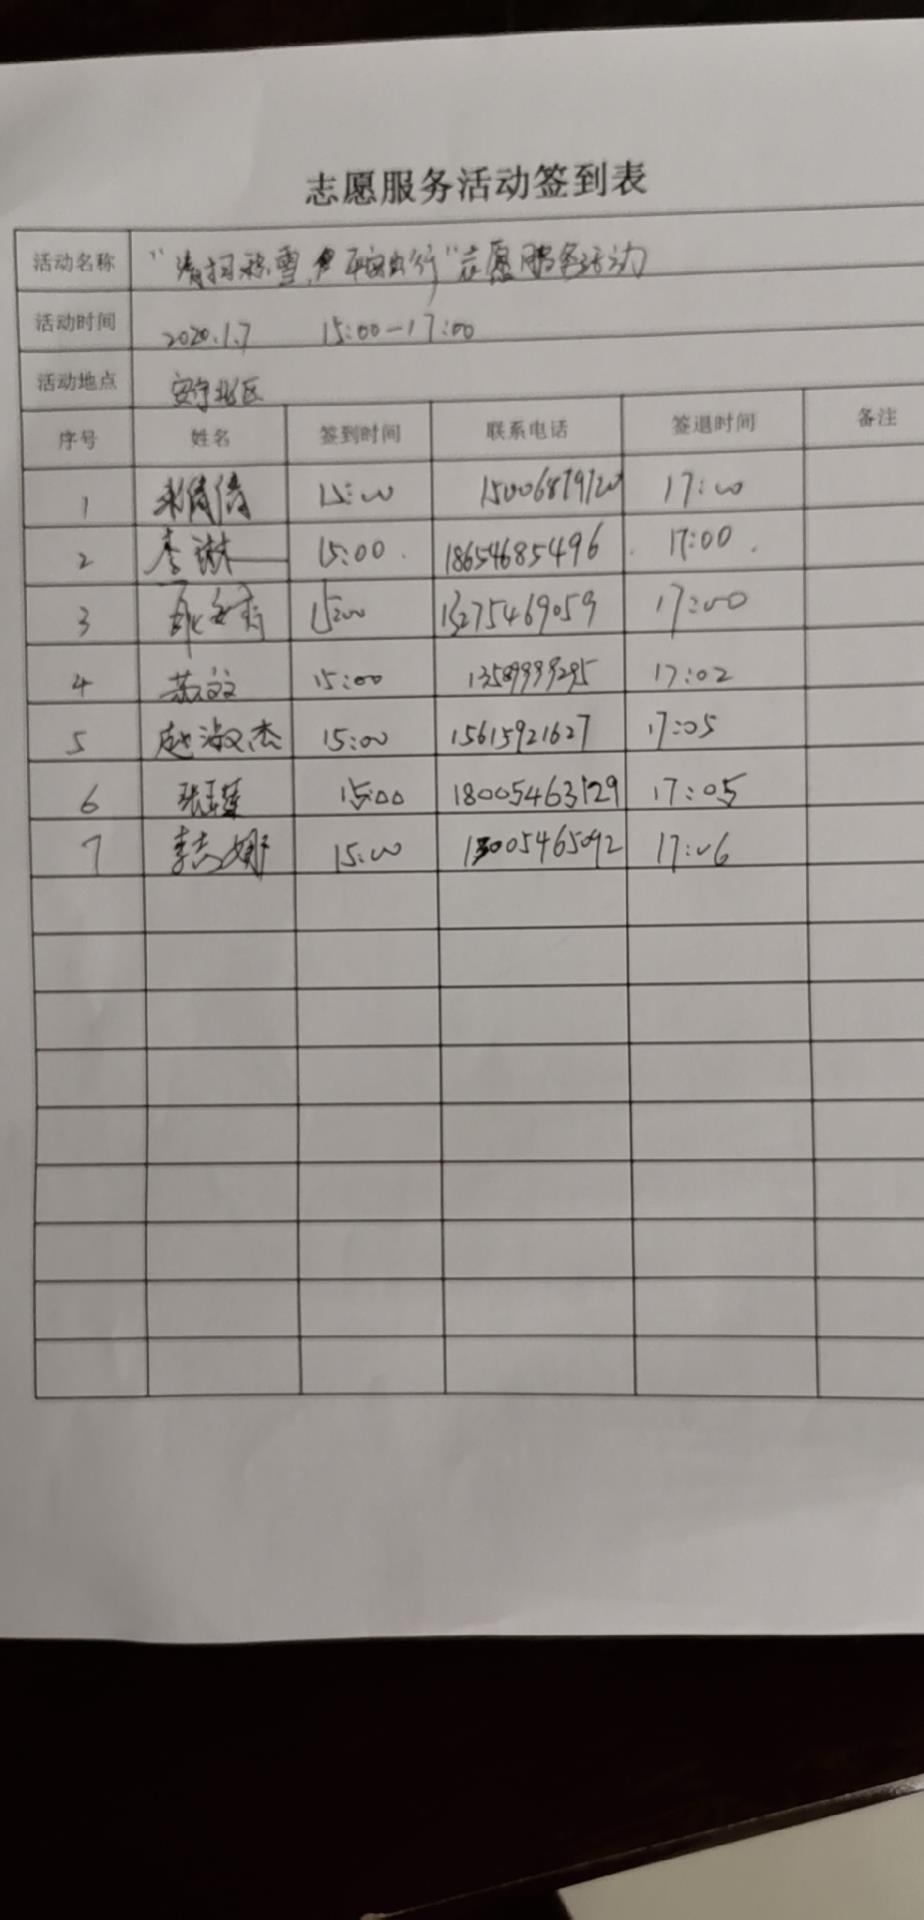 志愿服务活动签到表
活动名称 "清扫积雪,平安出行"志愿服务活动
活动时间 2020.1.7 15:00-17:00
活动地点 安宁北区
序号 姓名 签到时间 联系电话 签退时间 备注
1 倩倩 15:00 15006879120 17:00
2 李琳 15:00 18654685496 17:00
3 15:00 13275469059 17:00
4 苏文 15:00 13589999295 17:02
5 赵淑杰 15:00 15615921627 17:05
6 张 15:00 18005463129 17:05
7 李志娜 15:00 05465092 17:06